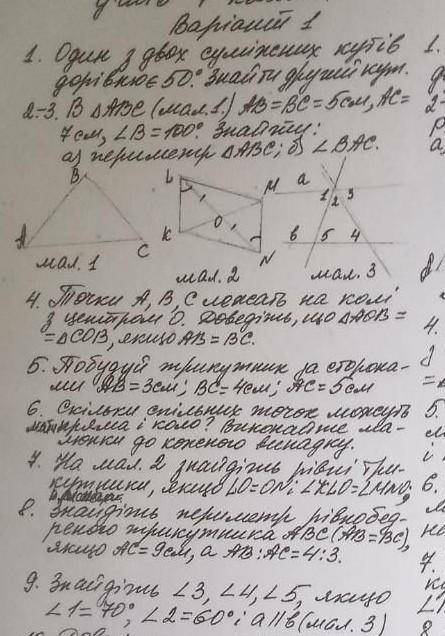 Варіант 1
1. Один з двох суміжних кутів
дорівнює 50°. Знайти другий кут.
2-3. В ΔABC (мал.1.) AB=BC=5см, AC=
7см, ∠B=100°. Знайти:
а) периметр ΔABC; б) ∠BAC.
B
A
C
мал. 1
L
M
K
O
N
мал. 2
a
1 2 3
b 5 4
мал. 3
4. Точки A, B, C лежать на колі
з центром O. Доведіть, що ΔAOB=
=ΔCOB, якщо AB=BC.
5. Побудуй трикутник за сторона-
ми AB=3см; BC=4см; AC=5см
6. Скільки спільних точок можуть
мати пряма і коло? Виконайте ма-
люнки до кожного випадку.
7. На мал. 2 знайдіть рівні три-
кутники, якщо LO=ON і ∠KLO=∠MNO,
8. Знайдіть периметр рівнобед-
реного трикутника ABC (AB=BC),
якщо AC=9см, а AB:AC=4:3.
9. Знайдіть ∠3, ∠4, ∠5, якщо
∠1=70°, ∠2=60° і a||b (мал. 3)